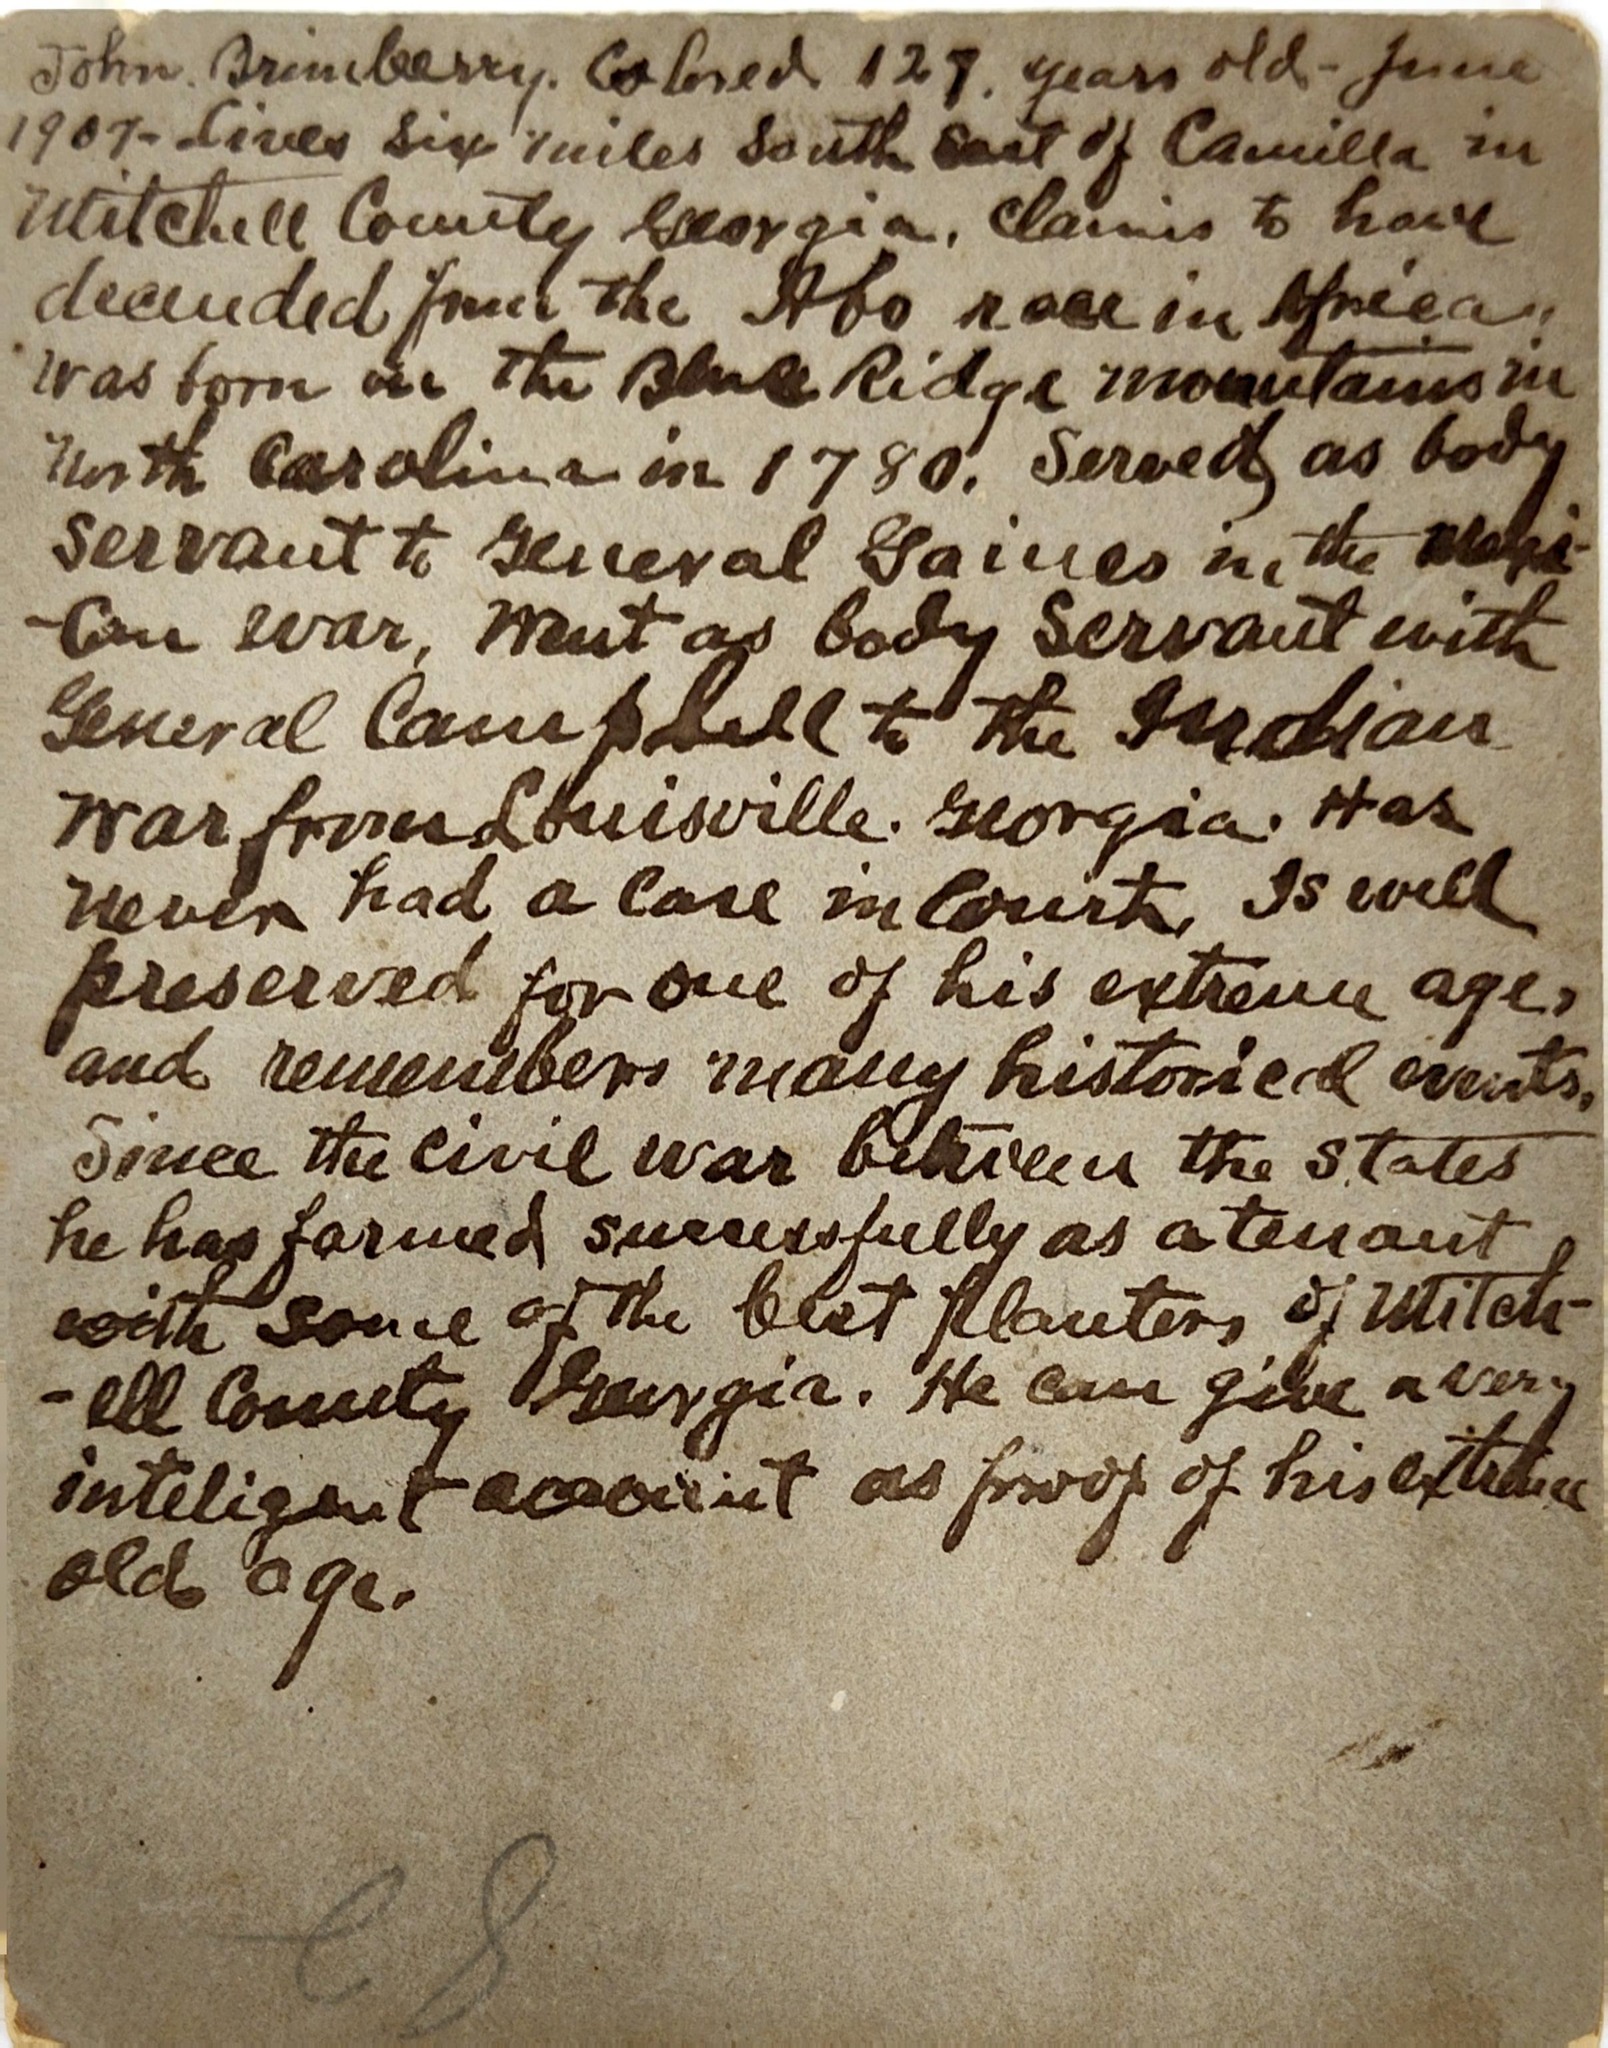 John. Brimberry. Colored. 127. years old - June
1907 - Lives six miles South East of Camilla in
Mitchell County Georgia. Claims to have
decended from the Abo race in Africa.
Was born in the Blue Ridge mountains in
North Carolina in 1780. Served, as body
servant to General Gaines in the Mexi-
-can war, Went as body Servant with
General Campbell to the Indian
War from Louisville. Georgia. Has
never had a Case in Court, Is well
preserved for one of his extreme age,
and remembers many historical events.
Since the civil war between the States
he has farmed successfully as a tenant
with some of the best planters of Mitch-
-ell County Georgia. He can give a very
inteligent account as proof of his extreme
old age.